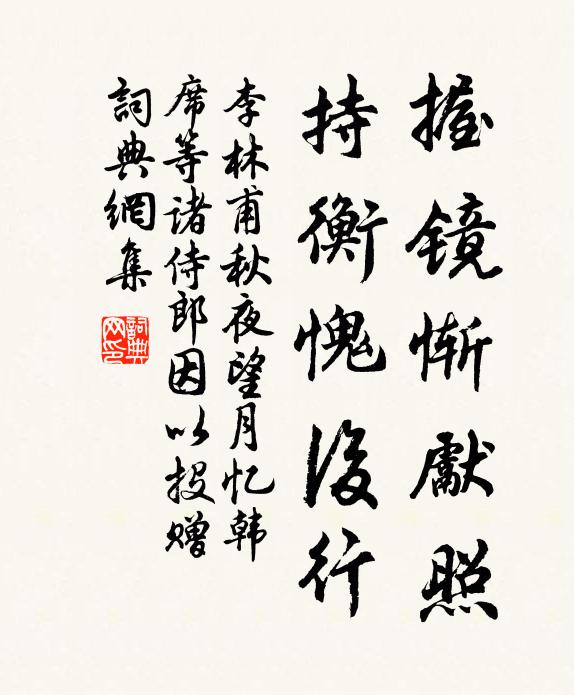 握镜惭献照
持衡愧后行
李林甫秋夜望月忆韩
席等诸侍郎因以投赠
词典网集
詞典
网印